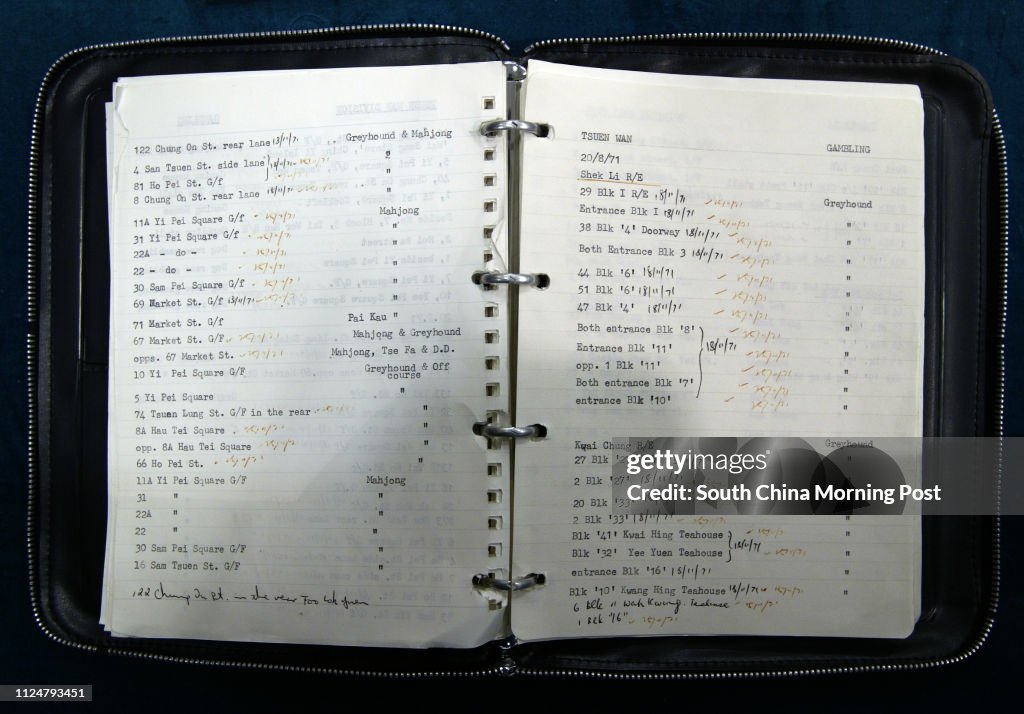 122 Chung On St. rear lane 18/11/71 Greyhound & Mahjong
4 San Tsuen St. side lane 18/11/71 "
81 Ho Pei St. G/f "
8 Chung On St. rear lane 18/11/71 "
11A Yi Pei Square G/f Mahjong
31 Yi Pei Square G/f "
22A - do - "
22 - do - "
30 Sam Pei Square G/f "
69 Market St. G/f 18/11/71 "
71 Market St. G/f Pai Kau "
67 Market St. G/F Mahjong & Greyhound
opps. 67 Market St. Mahjong, Tse Fa & D.D.
10 Yi Pei Square G/F Greyhound & Off course
5 Yi Pei Square "
74 Tsuen Lung St. G/F in the rear "
8A Hau Tei Square "
opp. 8A Hau Tei Square "
66 Ho Pei St. "
11A Yi Pei Square G/F Mahjong
31 " "
22A " "
22 " "
30 Sam Pei Square G/F "
16 Sam Tsuen St. G/F "
122 Chung On St. in the rear
TSUEN WAN GAMBLING
20/8/71
Shek Li R/E
29 Blk I R/E 18/11/71 Greyhound
Entrance Blk I 18/11/71 "
38 Blk '4' Doorway 18/11/71 "
Both Entrance Blk 3 18/11/71 "
44 Blk '6' 18/11/71 "
51 Blk '6' 18/11/71 "
47 Blk '4' 18/11/71 "
Both entrance Blk '8' "
Entrance Blk '11' 18/11/71 "
opp. 1 Blk '11' "
Both entrance Blk '7' "
entrance Blk '10' "
Kwai Chung R/E Greyhound
27 Blk
2 Blk '27'
20 Blk '33'
2 Blk '33' 18/11/71 "
Blk '41' Kwai Hing Teahouse "
Blk '32' Yee Yuen Teahouse 18/11/71 "
entrance Blk '16' 18/11/71 "
Blk '10' Kwang Hing Teahouse 18/11/71 "
6 Blk 11 Wah Kwong Teahouse
1 Blk "16"
gettyimages®
South China Morning Post
1124793451